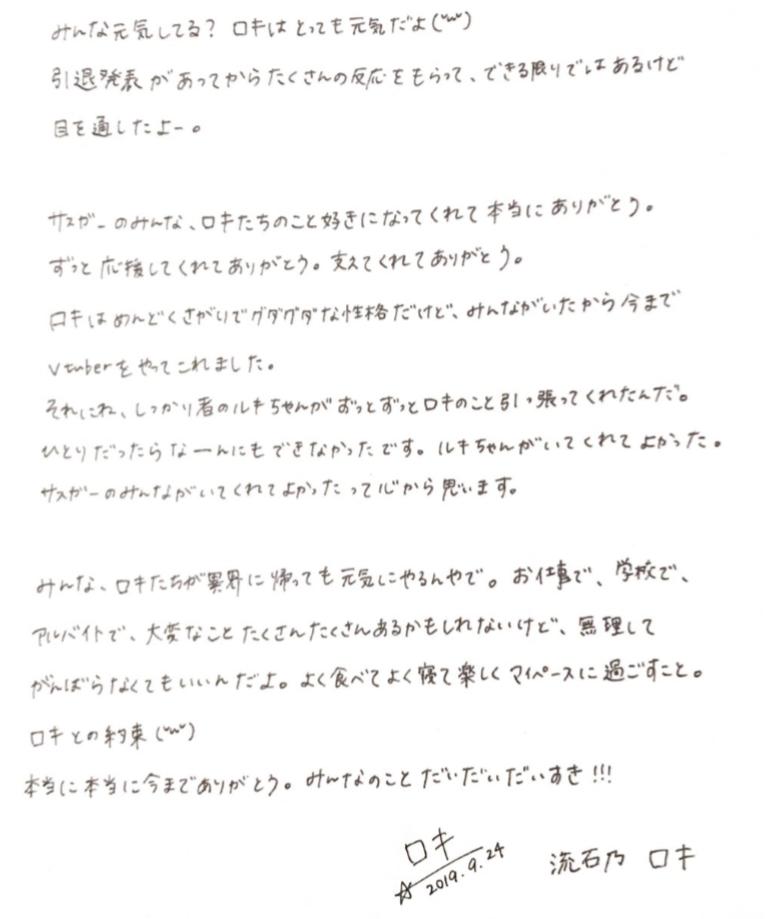 みんな元気してる? ロキはとっても元気だよ(˘ω˘)
引退発表があってからたくさんの反応をもらって、できる限りではあるけど
目を通したよー。
サスガーのみんな、ロキたちのこと好きになってくれて本当にありがとう。
ずっと応援してくれてありがとう。支えてくれてありがとう。
ロキはめんどくさがりでグダグダな性格だけど、みんながいたから今まで
Vtuberをやってこれました。
それにね、しっかり者のルキちゃんがずっとずっとロキのこと引っ張ってくれたんだ。
ひとりだったらなーんにもできなかったです。ルキちゃんがいてくれてよかった。
サスガーのみんながいてくれてよかったって心から思います。
みんな、ロキたちが異界に帰っても元気にやるんやで。お仕事で、学校で、
アルバイトで、大変なことたくさんたくさんあるかもしれないけど、無理して
がんばらなくてもいいんだよ。よく食べてよく寝て楽しくマイペースに過ごすこと。
ロキとの約束(˘ω˘)
本当に本当に今までありがとう。みんなのことだいだいだいすき!!!
ロキ
☆2019.9.24
流石乃 ロキ